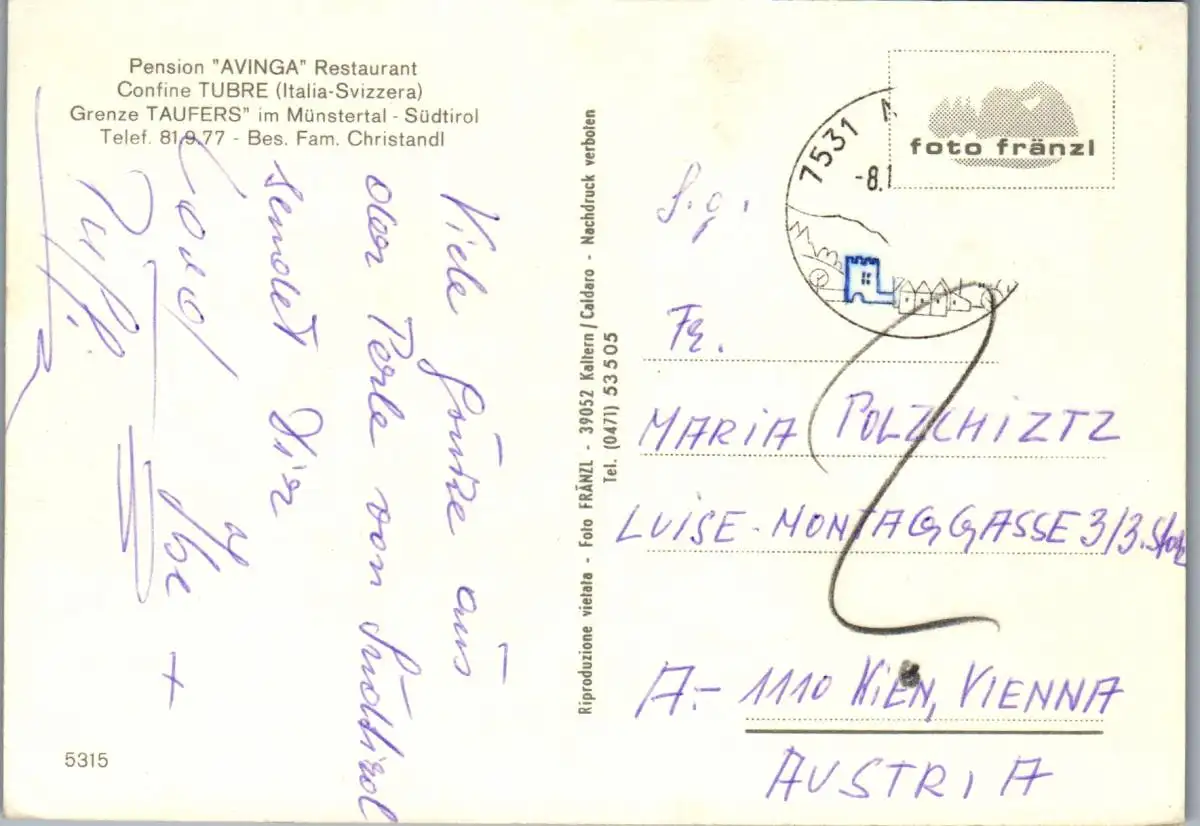 Pension "AVINGA" Restaurant
Confine TUBRE (Italia-Svizzera)
Grenze TAUFERS" im Münstertal - Südtirol
Telef. 81.9.77 - Bes. Fam. Christandl
Viele Grüße aus
der Perle von Südtirol
sendet Dir
+
5315
Riproduzione vietata - Foto FRÄNZL - 39052 Kaltern / Caldaro - Nachdruck verboten
Tel. (0471) 53505
7531
-8.1
foto fränzl
S.g.
Fr.
MARIA POLZCHIZTZ
LUISE-MONTAGGASSE 3/3.
A.- 1110 WIEN, VIENNA
AUSTRIA